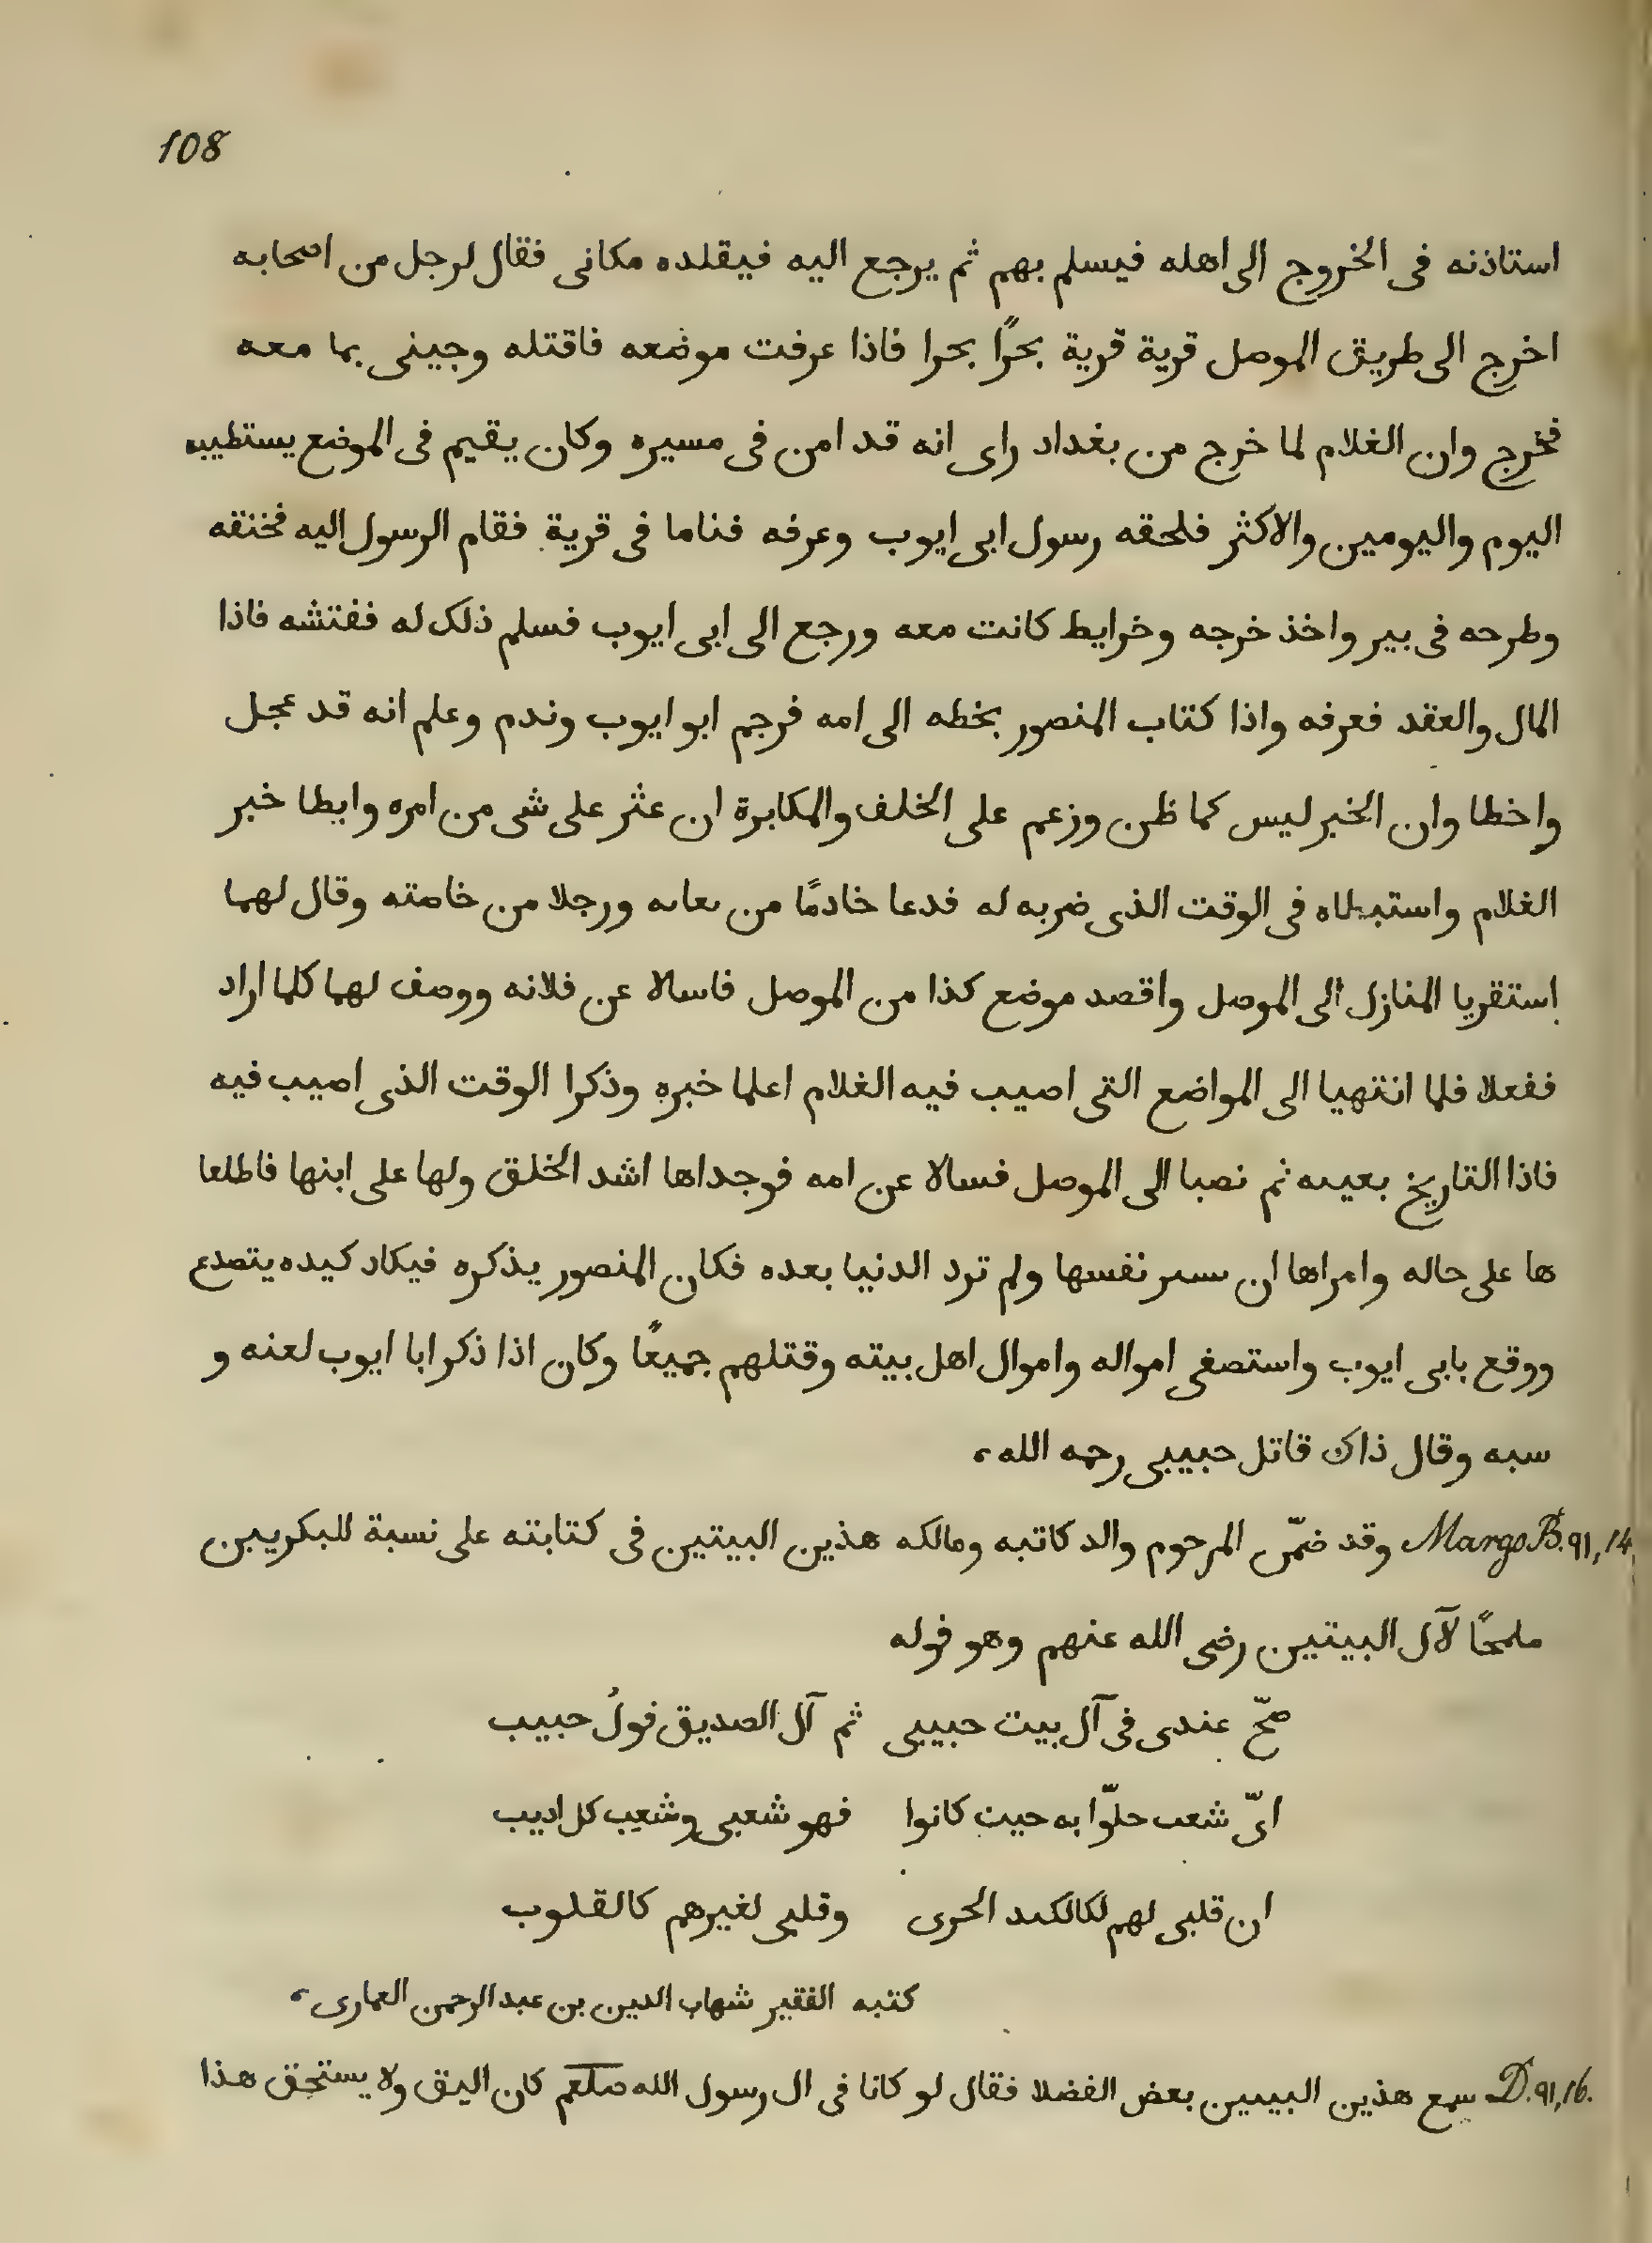 108
استاذنه فى الخروج الى اهله فيسلم بهم ثم يرجع اليه فيقلده مكانى فقال لرجل من اصحابه
اخرج الى طريق الموصل قرية قرية بحرًا بحرا فاذا عرفت موضعه فاقتله وجينى بما معه
فخرج وان الغلام لما خرج من بغداد راى انه قد امن فى مسيره وكان يقيم فى الموضع يستطيبه
اليوم واليومين والاكثر فلحقه رسول ابى ايوب وعرفه فناما فى قرية فقام الرسول اليه فخنقه
وطرحه فى بير واخذ خرجه وخرايط كانت معه ورجع الى ابى ايوب فسلم ذلك له ففتشه فاذا
المال والعقد فعرفه واذا كتاب المنصور بخطه الى امه فرجم ابو ايوب وندم وعلم انه قد عجل
واخطا وان الخبر ليس كما ظن وزعم على الخلف والمكابرة ان عثر على شى من امره وابطا خبر
الغلام واستبطاه فى الوقت الذى ضربه له فدعا خادمًا من ورجلا من خاصته وقال لهما
استقريا المنازل الى الموصل واقصد موضع كذا من الموصل فاسالا عن فلانه ووصف لهما كلما اراد
ففعلا فلما انتهيا الى المواضع التى اصيب فيه الغلام اعلما خبره وذكرا الوقت الذى اصيب فيه
فاذا التاريخ بعينه ثم نصبا الى الموصل فسالا عن امه فوجداها اشد الخلق ولها على ابنها فاطلعا
ها على حاله وامراها ان نفسها ولم ترد الدنيا بعده فكان المنصور يذكره فيكاد كيده يتصدع
ووقع بابى ايوب واستصفى امواله واموال اهل بيته وقتلهم جميعًا وكان اذا ذكر ابا ايوب لعنه و
سبه وقال ذاك قاتل حبيبى رحمه الله،
Margo B. 91, 14. وقد ضمّن المرحوم والد كاتبه ومالكه هذين البيتين فى كتابته على نسبة للبكريين
ملمحًا لآل البيتين رضى الله عنهم وهو قوله
صحّ عندى فى آل بيت حبيبى ثم آل الصديق قولُ حبيب
اىّ شعب حلّوا به حيث كانوا فهو شعبى وشعب كل اديب
ان قلبى لهم لكالكبد الحرى وقلبى لغيرهم كالقلوب
كتبه الفقير شهاب الدين بن عبد الرحمن العمارى،
D. 91, 16. سمع هذين البيتين بعض الفضلا فقال لو كانا فى ال رسول الله صلعم كان اليق ولا يستحق هذا